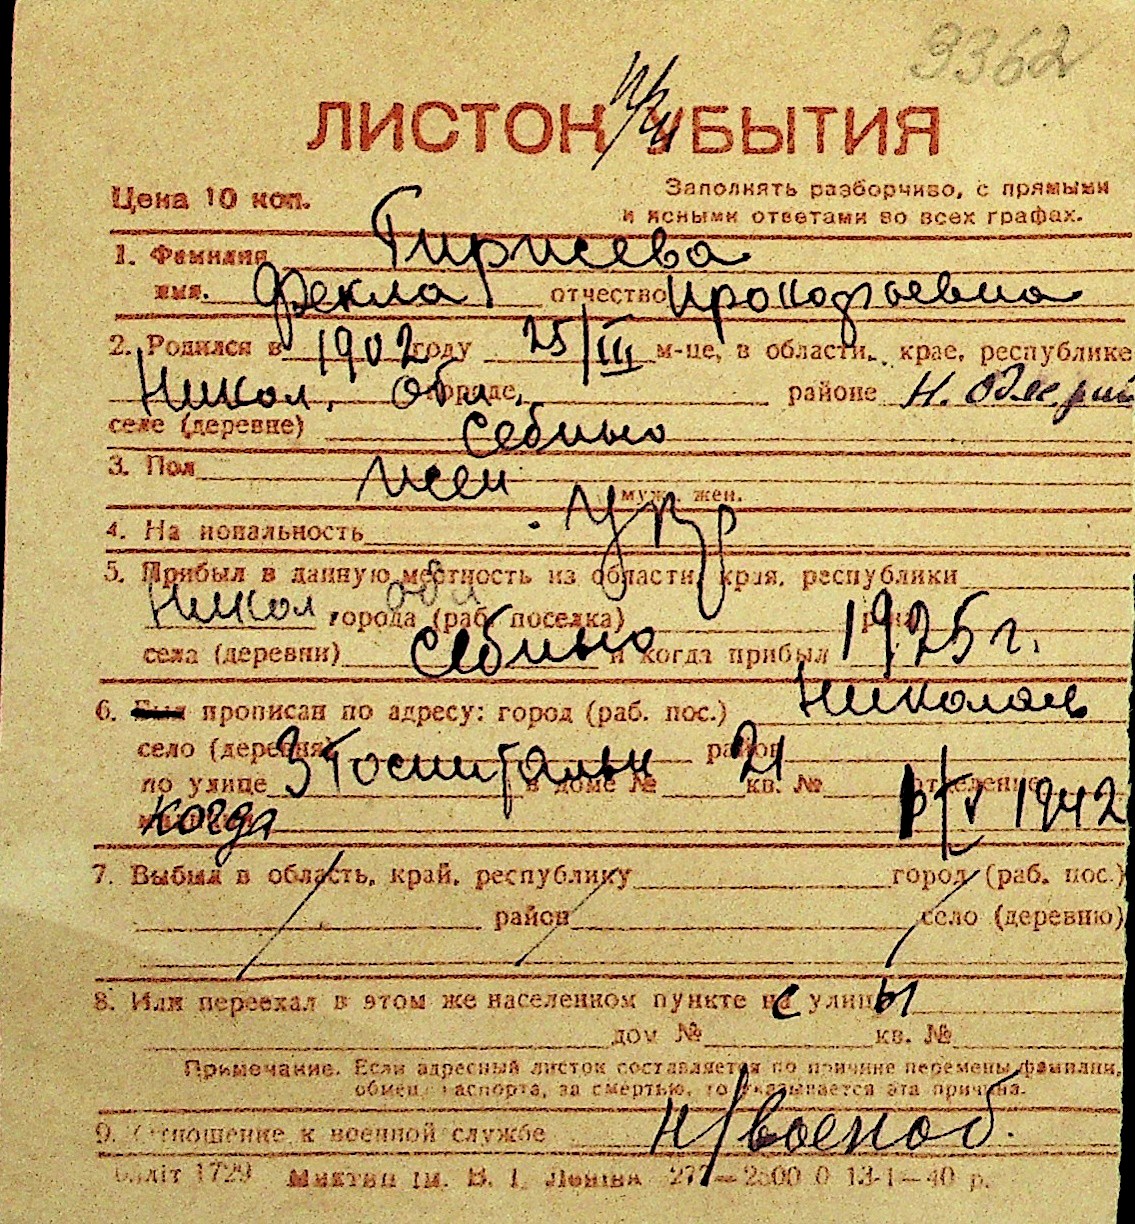 3362
ЛИСТОК при УБЫТИЯ
Цена 10 коп.
Заполнять разборчиво, с прямыми
и ясными ответами во всех графах.
1. Фамилия Гирисева
имя. Фекла отчество Прокофьевна
2. Родился в 1902 году 25/III м-це, в области, крае, республике
Никол. обл. городе, районе Н.
селе (деревне) Себино
3. Пол жен
муж. жен.
4. На иональность укр
5. Прибыл в данную местность из области, края, республики
Никол обл города (раб. поселка)
села (деревни) Себино и когда прибыл 1925 г.
6. прописан по адресу: город (раб. пос.) Николаев
село (деревня) район
по улице 3 Госпитальн в доме № 21 кв. № отделение
когда 1942
7. Выбыл в область, край, республику город (раб. пос.)
район село (деревню)
8. Или переехал в этом же населенном пункте с улицы
дом № кв. №
Примечание. Если адресный листок составляется по причине перемены фамилии,
обмен паспорта, за смертью, то указывается эта причина.
9. Отношение к военной службе н/военоб.
Біліт 1729 ім. В. І. Леніна 277—2500 0 13-1—40 р.